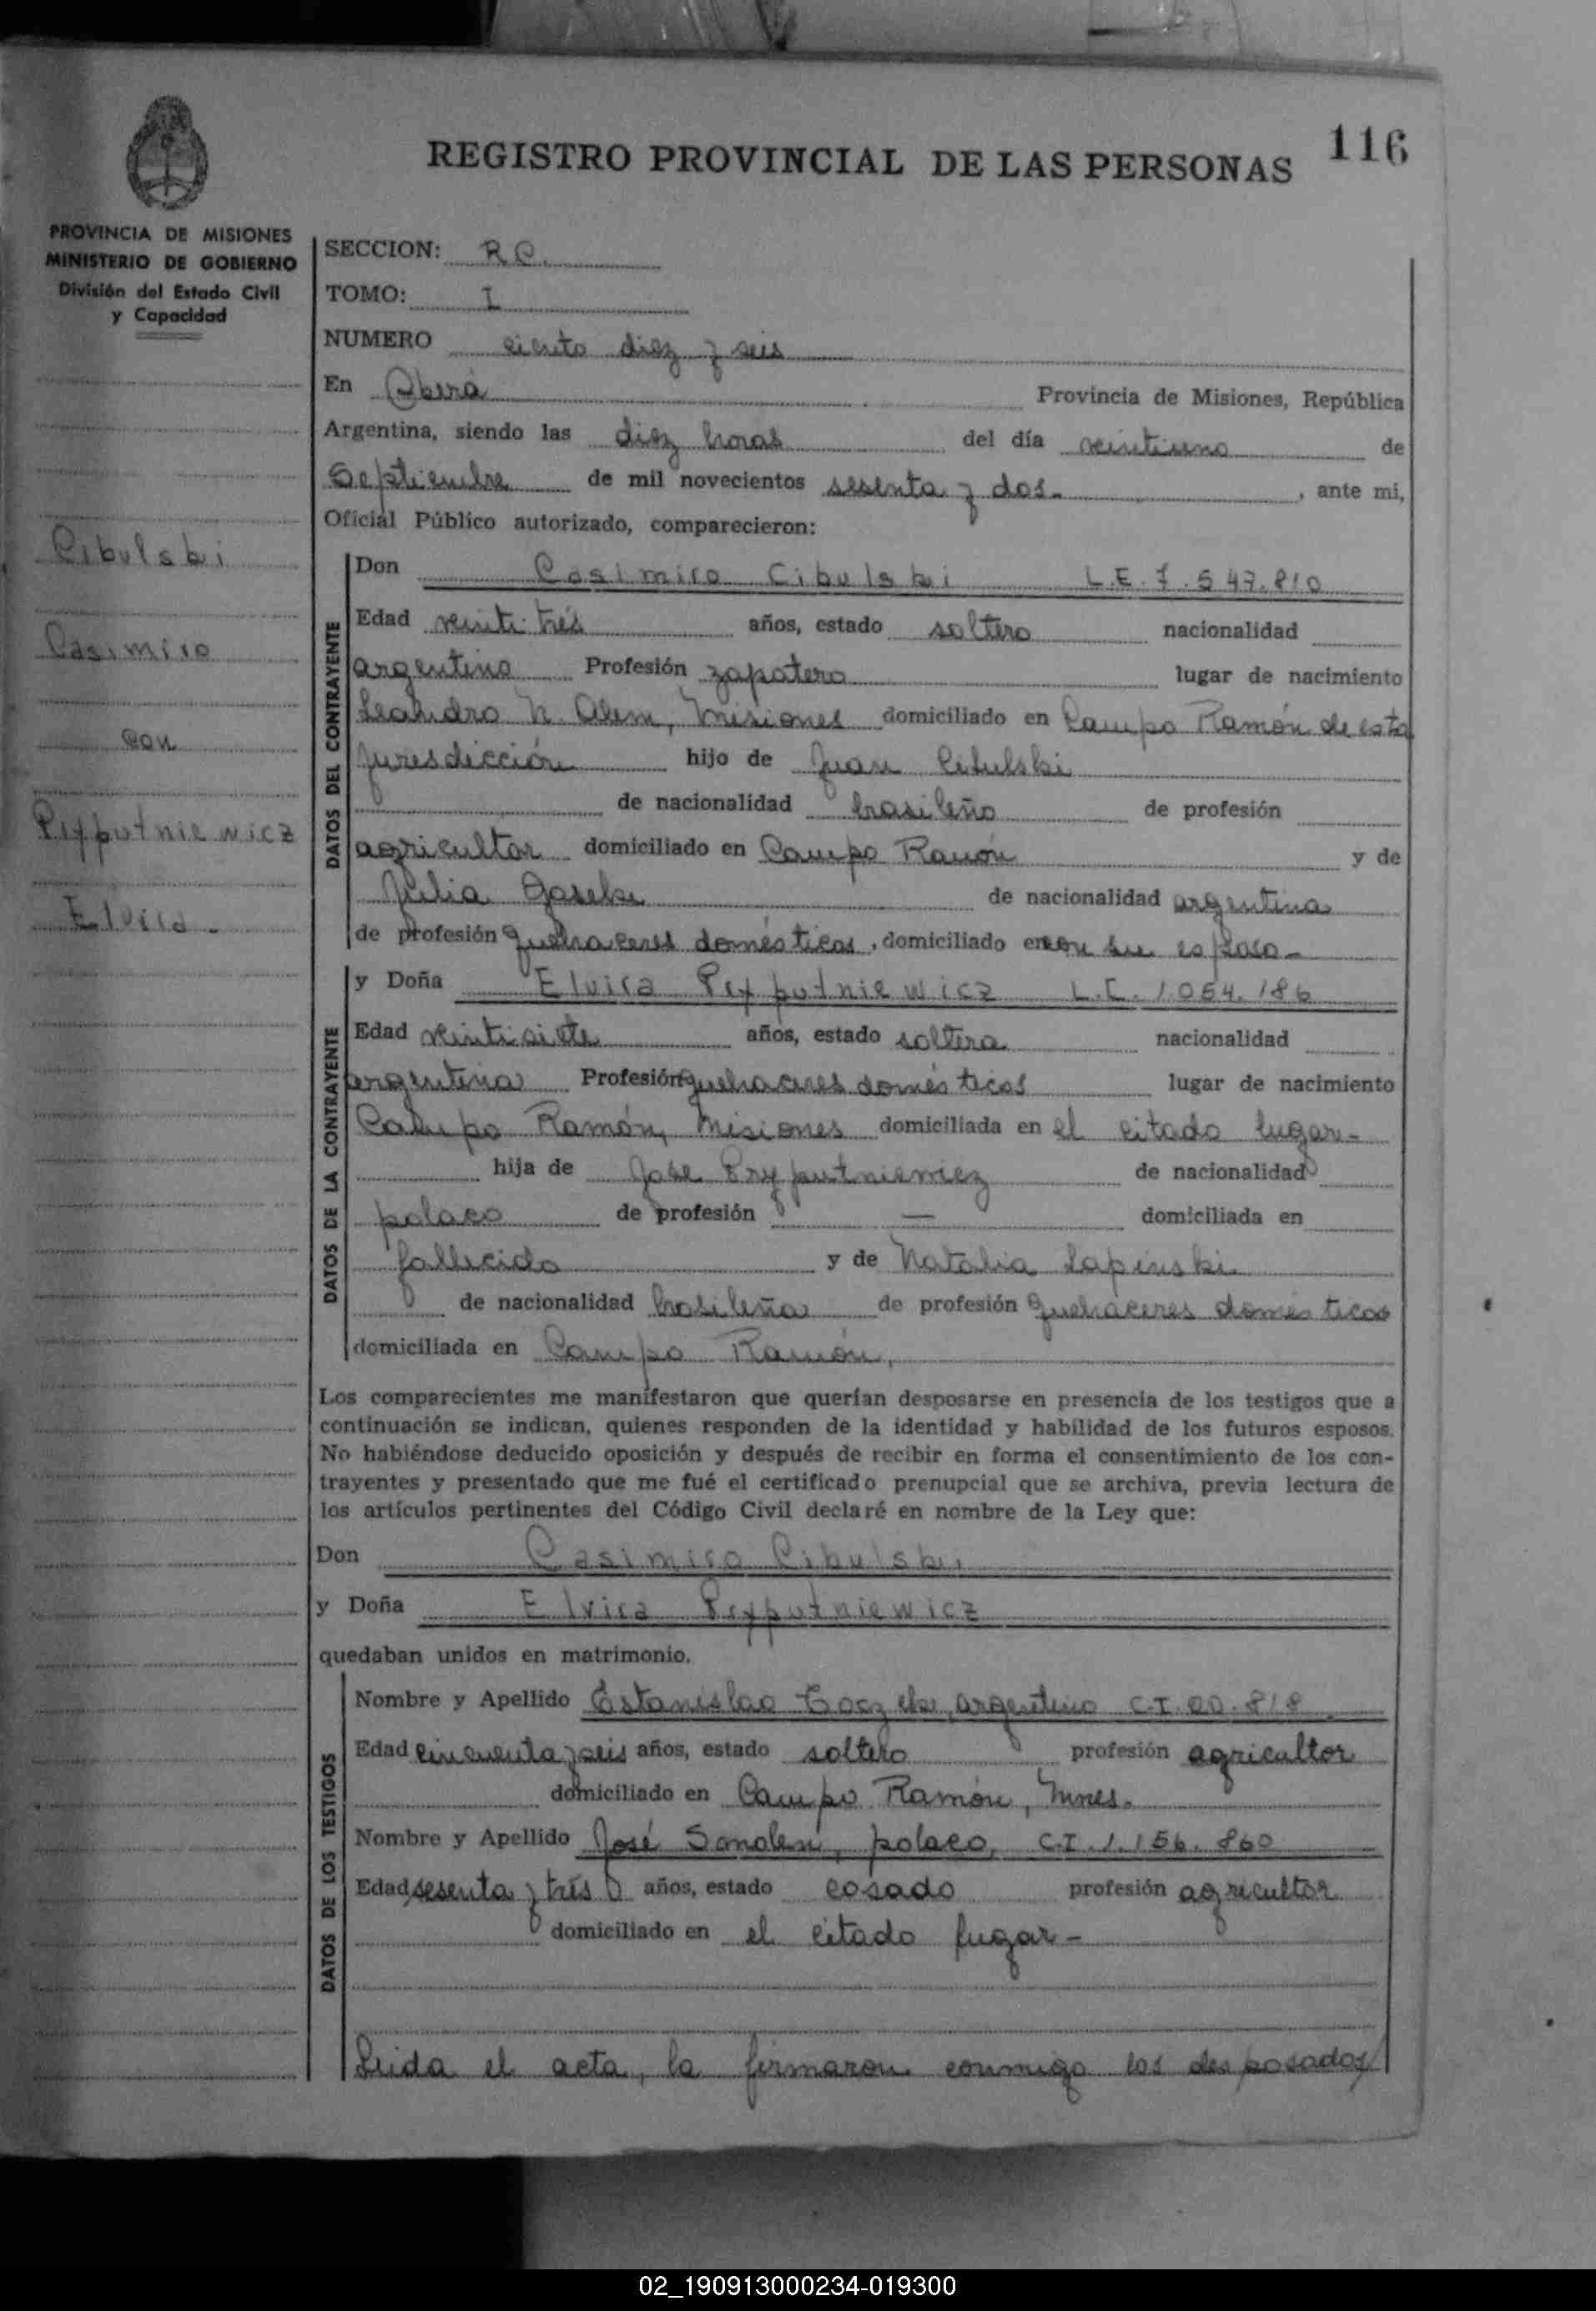 116
REGISTRO PROVINCIAL DE LAS PERSONAS
PROVINCIA DE MISIONES
MINISTERIO DE GOBIERNO
División del Estado Civil
y Capacidad
Cibulski
Casimiro
con
Pryputniewicz
Elvira.
SECCION: R C.
TOMO: I
NUMERO ciento diez y seis
En Oberá Provincia de Misiones, República
Argentina, siendo las diez horas del día veintiuno de
Septiembre de mil novecientos sesenta y dos.- , ante mi,
Oficial Público autorizado, comparecieron:
DATOS DEL CONTRAYENTE
Don Casimiro Cibulski L.E. 7.547.810
Edad veinti trés años, estado soltero nacionalidad
argentino Profesión zapatero lugar de nacimiento
Leandro N Alem, Misiones domiciliado en Campo Ramón de esta
jurisdicción hijo de Juan Cibulski
de nacionalidad brasileño de profesión
agricultor domiciliado en Campo Ramón y de
Julia de nacionalidad argentina
de profesión quehaceres domésticos, domiciliado en con su esposo-
DATOS DE LA CONTRAYENTE
y Doña Elvira Pryputniewicz L.C. 1.054.186
Edad veintisiete años, estado soltera nacionalidad
argentina Profesión quehaceres domésticos lugar de nacimiento
Campo Ramón, Misiones domiciliada en el citado lugar-
hija de José Pryputniewicz de nacionalidad
polaco de profesión — domiciliada en
fallecido y de Natalia Lapinski
de nacionalidad brasileña de profesión quehaceres domésticos
domiciliada en Campo Ramón,
Los comparecientes me manifestaron que querían desposarse en presencia de los testigos que a
continuación se indican, quienes responden de la identidad y habilidad de los futuros esposos.
No habiéndose deducido oposición y después de recibir en forma el consentimiento de los con-
trayentes y presentado que me fué el certificado prenupcial que se archiva, previa lectura de
los artículos pertinentes del Código Civil declaré en nombre de la Ley que:
Don Casimiro Cibulski
y Doña Elvira Pryputniewicz
quedaban unidos en matrimonio.
DATOS DE LOS TESTIGOS
Nombre y Apellido Estanislao argentino C.I. 20.818
Edad cincuenta y seis años, estado soltero profesión agricultor
domiciliado en Campo Ramón, Mnes.
Nombre y Apellido José polaco, C.I. 1.156.860
Edad sesenta y trés años, estado casado profesión agricultor
domiciliado en el citado lugar-
Leida el acta, la firmaron conmigo los desposados/
02_190913000234-019300